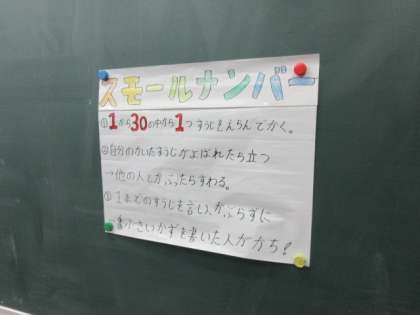 スモールナンバー
①1から30の中から1つ すうじをえらんでかく。
②自分のかいたすうじがよばれたら立つ
→他の人とかぶったらすわる。
③1までのすうじを言い、かぶらずに
一番小さいかずを書いた人がかち!